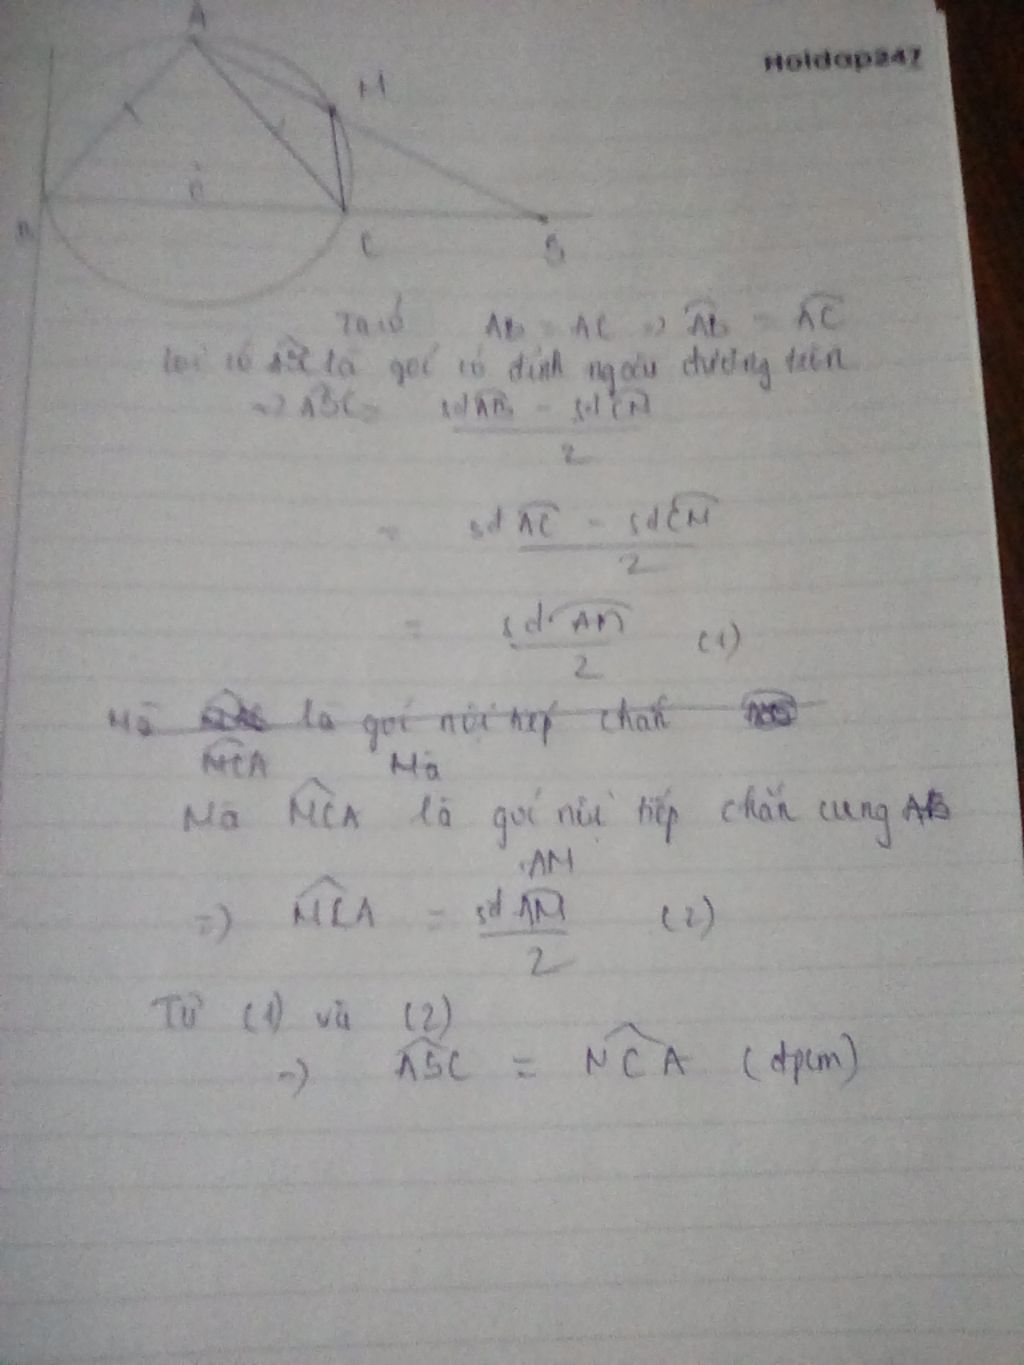 Hoidap247
A
M
O
B
C
S
Ta có AB = AC => AB = AC
lại có ASC là goí có đỉnh ngoài đường tròn
=> ASC = sđAB - sđCM
2
= sđ AC - sđ CM
2
= sđ AM (1)
2
Mà là goí nội tiếp chắn
MCA Mà
Mà MCA là goí nội tiếp chắn cung AB
AM
=> MCA = sđ AM (2)
2
Từ (1) và (2)
=> ASC = MCA (đpcm)